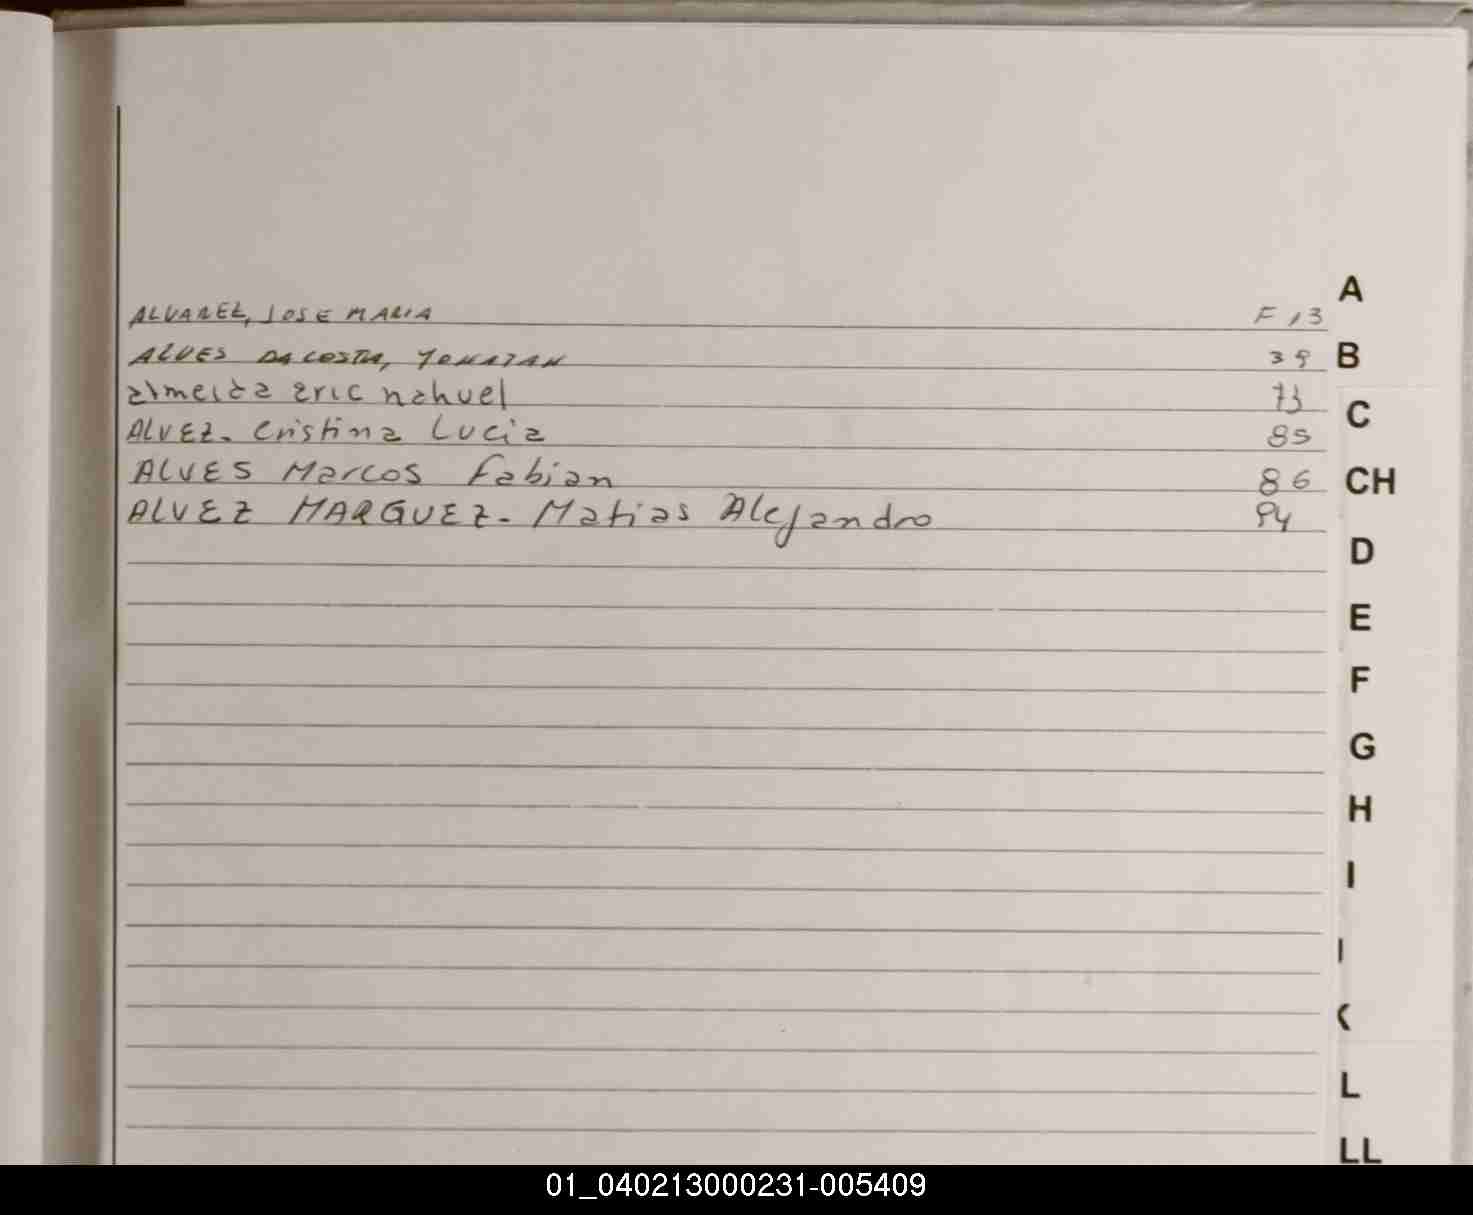 ALVAREZ, JOSE MARIA F 13
ALVES DA COSTA, YONATAN 39
almeida eric nahuel 73
ALVEZ. Cristina Lucia 85
ALVES Marcos Fabian 86
ALVEZ MARGUEZ. Matias Alejandro 94
A
B
C
CH
D
E
F
G
H
I
K
L
LL
01_040213000231-005409